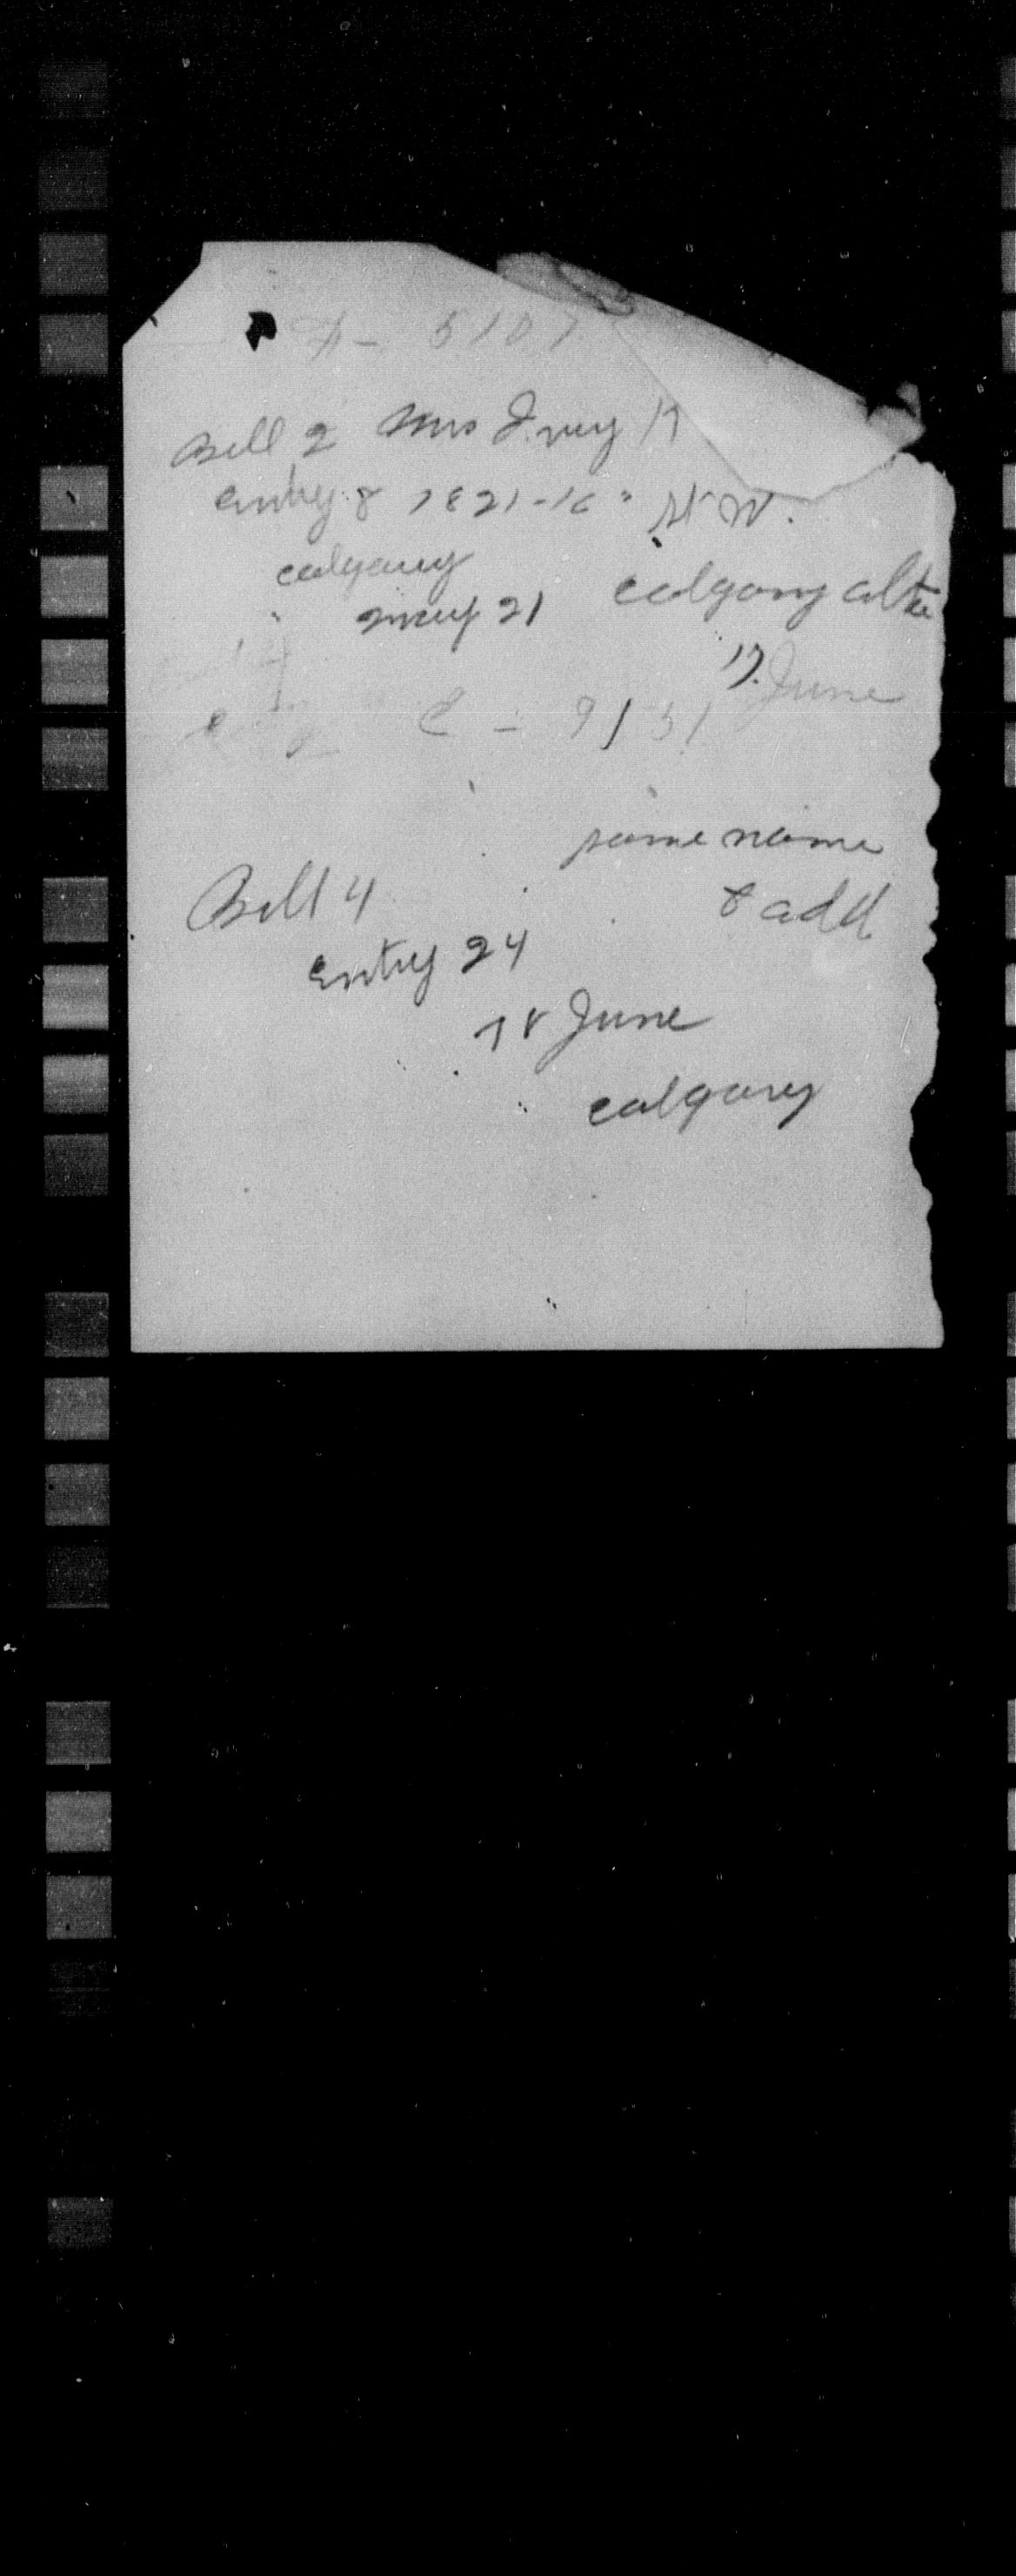 5107
Bill 2 Mrs
Entry 8 1821-16" St W.
calgary calgary alta
may 21
17 June
C - 9151
same name
Bill 4 & add
entry 24
18 June
calgary